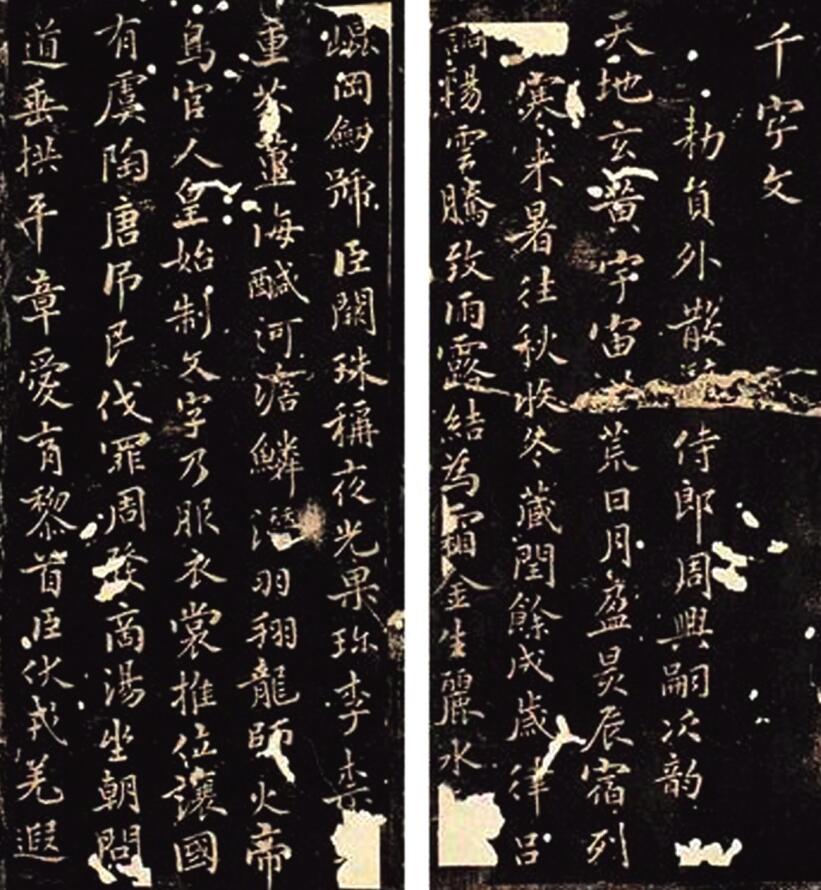 千字文
勅員外散侍郎周興嗣次韵
天地玄黃宇宙荒日月盈昃辰宿列
寒来暑往秋收冬藏閏餘成歲律呂
調陽雲騰致雨露結為霜金生麗水
崐岡劍號巨闕珠稱夜光果珍李柰
重芥薑海醎河澹鱗潛羽翔龍師火帝
鳥官人皇始制文字乃服衣裳推位讓國
有虞陶唐吊民伐罪周發商湯坐朝問
道垂拱平章愛育黎首臣伏戎羌遐